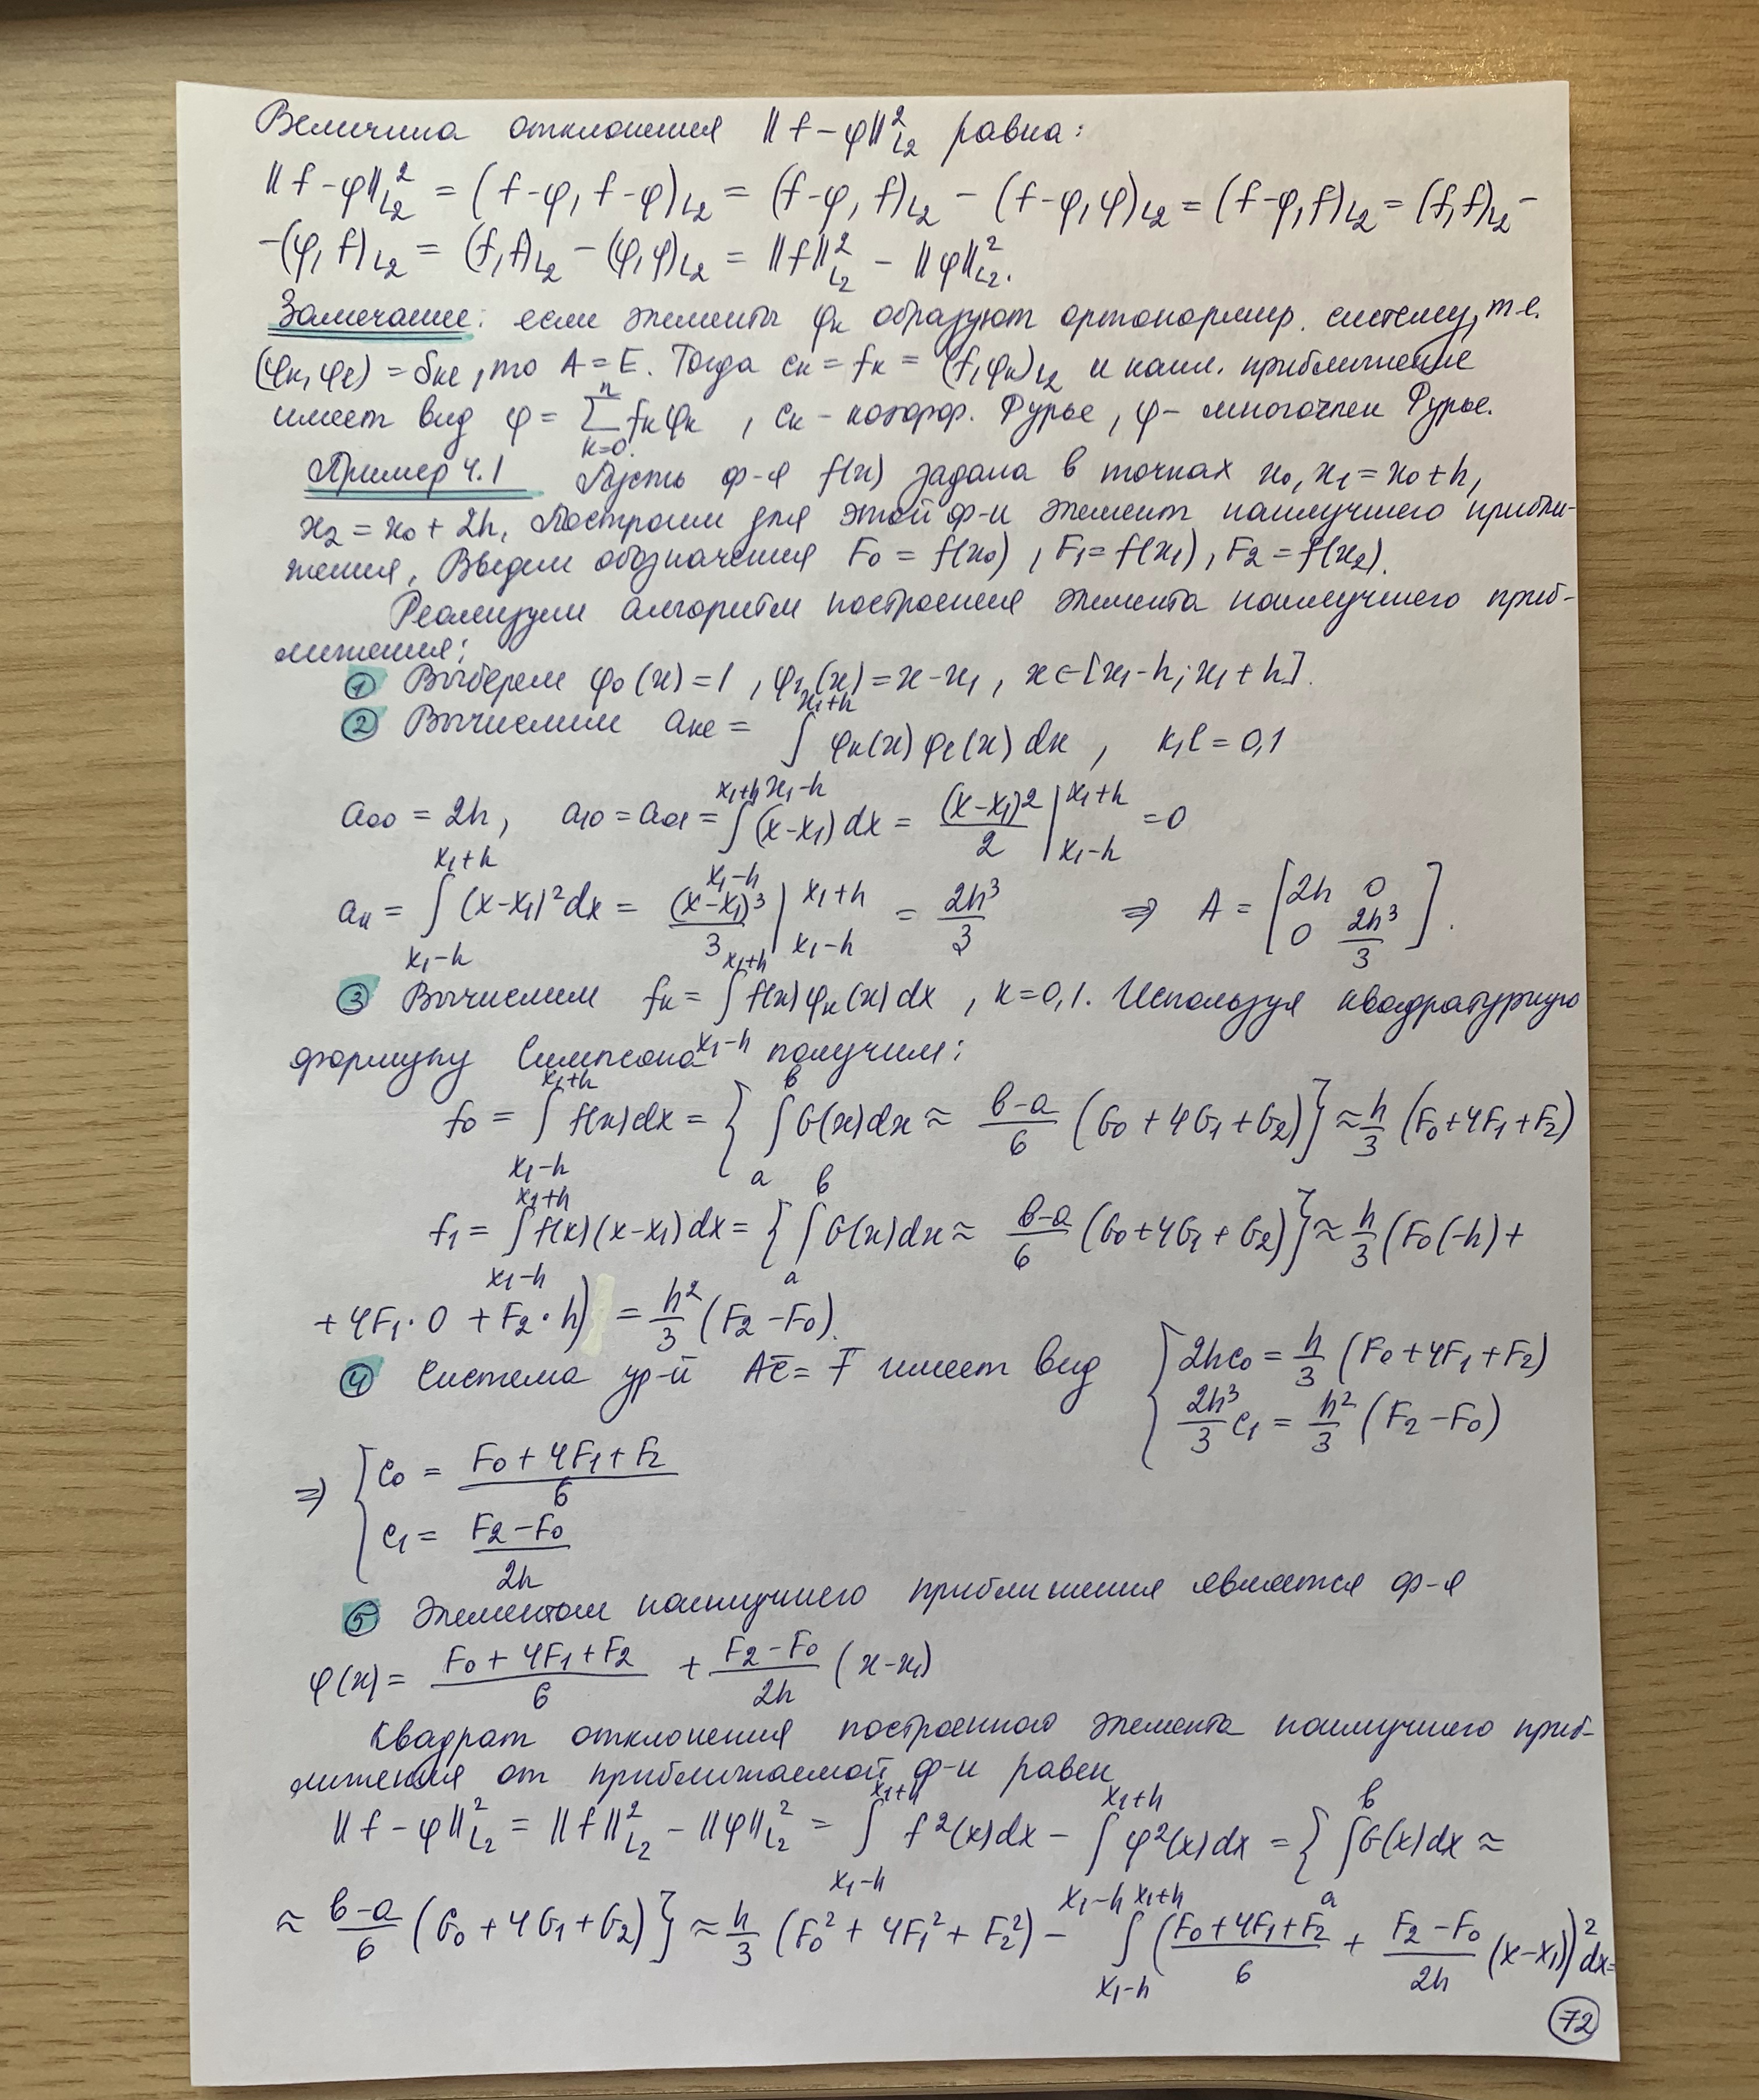 Величина отклонения ‖f-φ‖²_{L2} равна:
‖f-φ‖²_{L2} = (f-φ, f-φ)_{L2} = (f-φ, f)_{L2} - (f-φ, φ)_{L2} = (f-φ, f)_{L2} = (f, f)_{L2} -
-(φ, f)_{L2} = (f, f)_{L2} - (φ, φ)_{L2} = ‖f‖²_{L2} - ‖φ‖²_{L2}.
Замечание: если элементы φ_k образуют ортонормир. систему, т.е.
(φ_k, φ_l) = δ_{kl}, то A = E. Тогда c_k = f_k = (f, φ_k)_{L2} и наил. приближение
имеет вид φ = ∑_{k=0}^{n} f_k φ_k, c_k - коэфф. Фурье, φ - многочлен Фурье.
Пример 4.1 Пусть ф-я f(x) задана в точках x₀, x₁ = x₀ + h,
x₂ = x₀ + 2h. Построим для этой ф-и элемент наилучшего прибли-
жения. Введем обозначения F₀ = f(x₀), F₁ = f(x₁), F₂ = f(x₂).
Реализуем алгоритм построения элемента наилучшего приб-
лижения:
① Выберем φ₀(x) = 1, φ₁(x) = x - x₁, x ∈ [x₁-h; x₁+h].
② Вычислим a_{kl} = ∫_{x₁-h}^{x₁+h} φ_k(x) φ_l(x) dx, k, l = 0,1
a₀₀ = 2h, a₁₀ = a₀₁ = ∫_{x₁-h}^{x₁+h} (x-x₁) dx = (x-x₁)²/2 |_{x₁-h}^{x₁+h} = 0
a₁₁ = ∫_{x₁-h}^{x₁+h} (x-x₁)² dx = (x-x₁)³/3 |_{x₁-h}^{x₁+h} = 2h³/3 ⇒ A = [2h 0; 0 2h³/3].
③ Вычислим f_k = ∫_{x₁-h}^{x₁+h} f(x) φ_k(x) dx, k = 0,1. Используя квадратурную
формулу Симпсона получим:
f₀ = ∫_{x₁-h}^{x₁+h} f(x) dx = {∫_a^b G(x) dx ≈ (b-a)/6 (G₀ + 4G₁ + G₂)} ≈ h/3 (F₀ + 4F₁ + F₂)
f₁ = ∫_{x₁-h}^{x₁+h} f(x)(x-x₁) dx = {∫_a^b G(x) dx ≈ (b-a)/6 (G₀ + 4G₁ + G₂)} ≈ h/3 (F₀(-h) +
+ 4F₁·0 + F₂·h) = h²/3 (F₂ - F₀).
④ Система ур-й Ac̄ = f̄ имеет вид { 2hc₀ = h/3 (F₀ + 4F₁ + F₂)
2h³/3 c₁ = h²/3 (F₂ - F₀)
⇒ { c₀ = (F₀ + 4F₁ + F₂)/6
c₁ = (F₂ - F₀)/2h
⑤ Элементом наилучшего приближения является ф-я
φ(x) = (F₀ + 4F₁ + F₂)/6 + (F₂ - F₀)/2h (x - x₁)
Квадрат отклонения построенного элемента наилучшего приб-
лижения от приближаемой ф-и равен
‖f-φ‖²_{L2} = ‖f‖²_{L2} - ‖φ‖²_{L2} = ∫_{x₁-h}^{x₁+h} f²(x) dx - ∫_{x₁-h}^{x₁+h} φ²(x) dx = {∫_a^b G(x) dx ≈
≈ (b-a)/6 (G₀ + 4G₁ + G₂)} ≈ h/3 (F₀² + 4F₁² + F₂²) - ∫_{x₁-h}^{x₁+h} ((F₀ + 4F₁ + F₂)/6 + (F₂ - F₀)/2h (x-x₁))² dx =
72